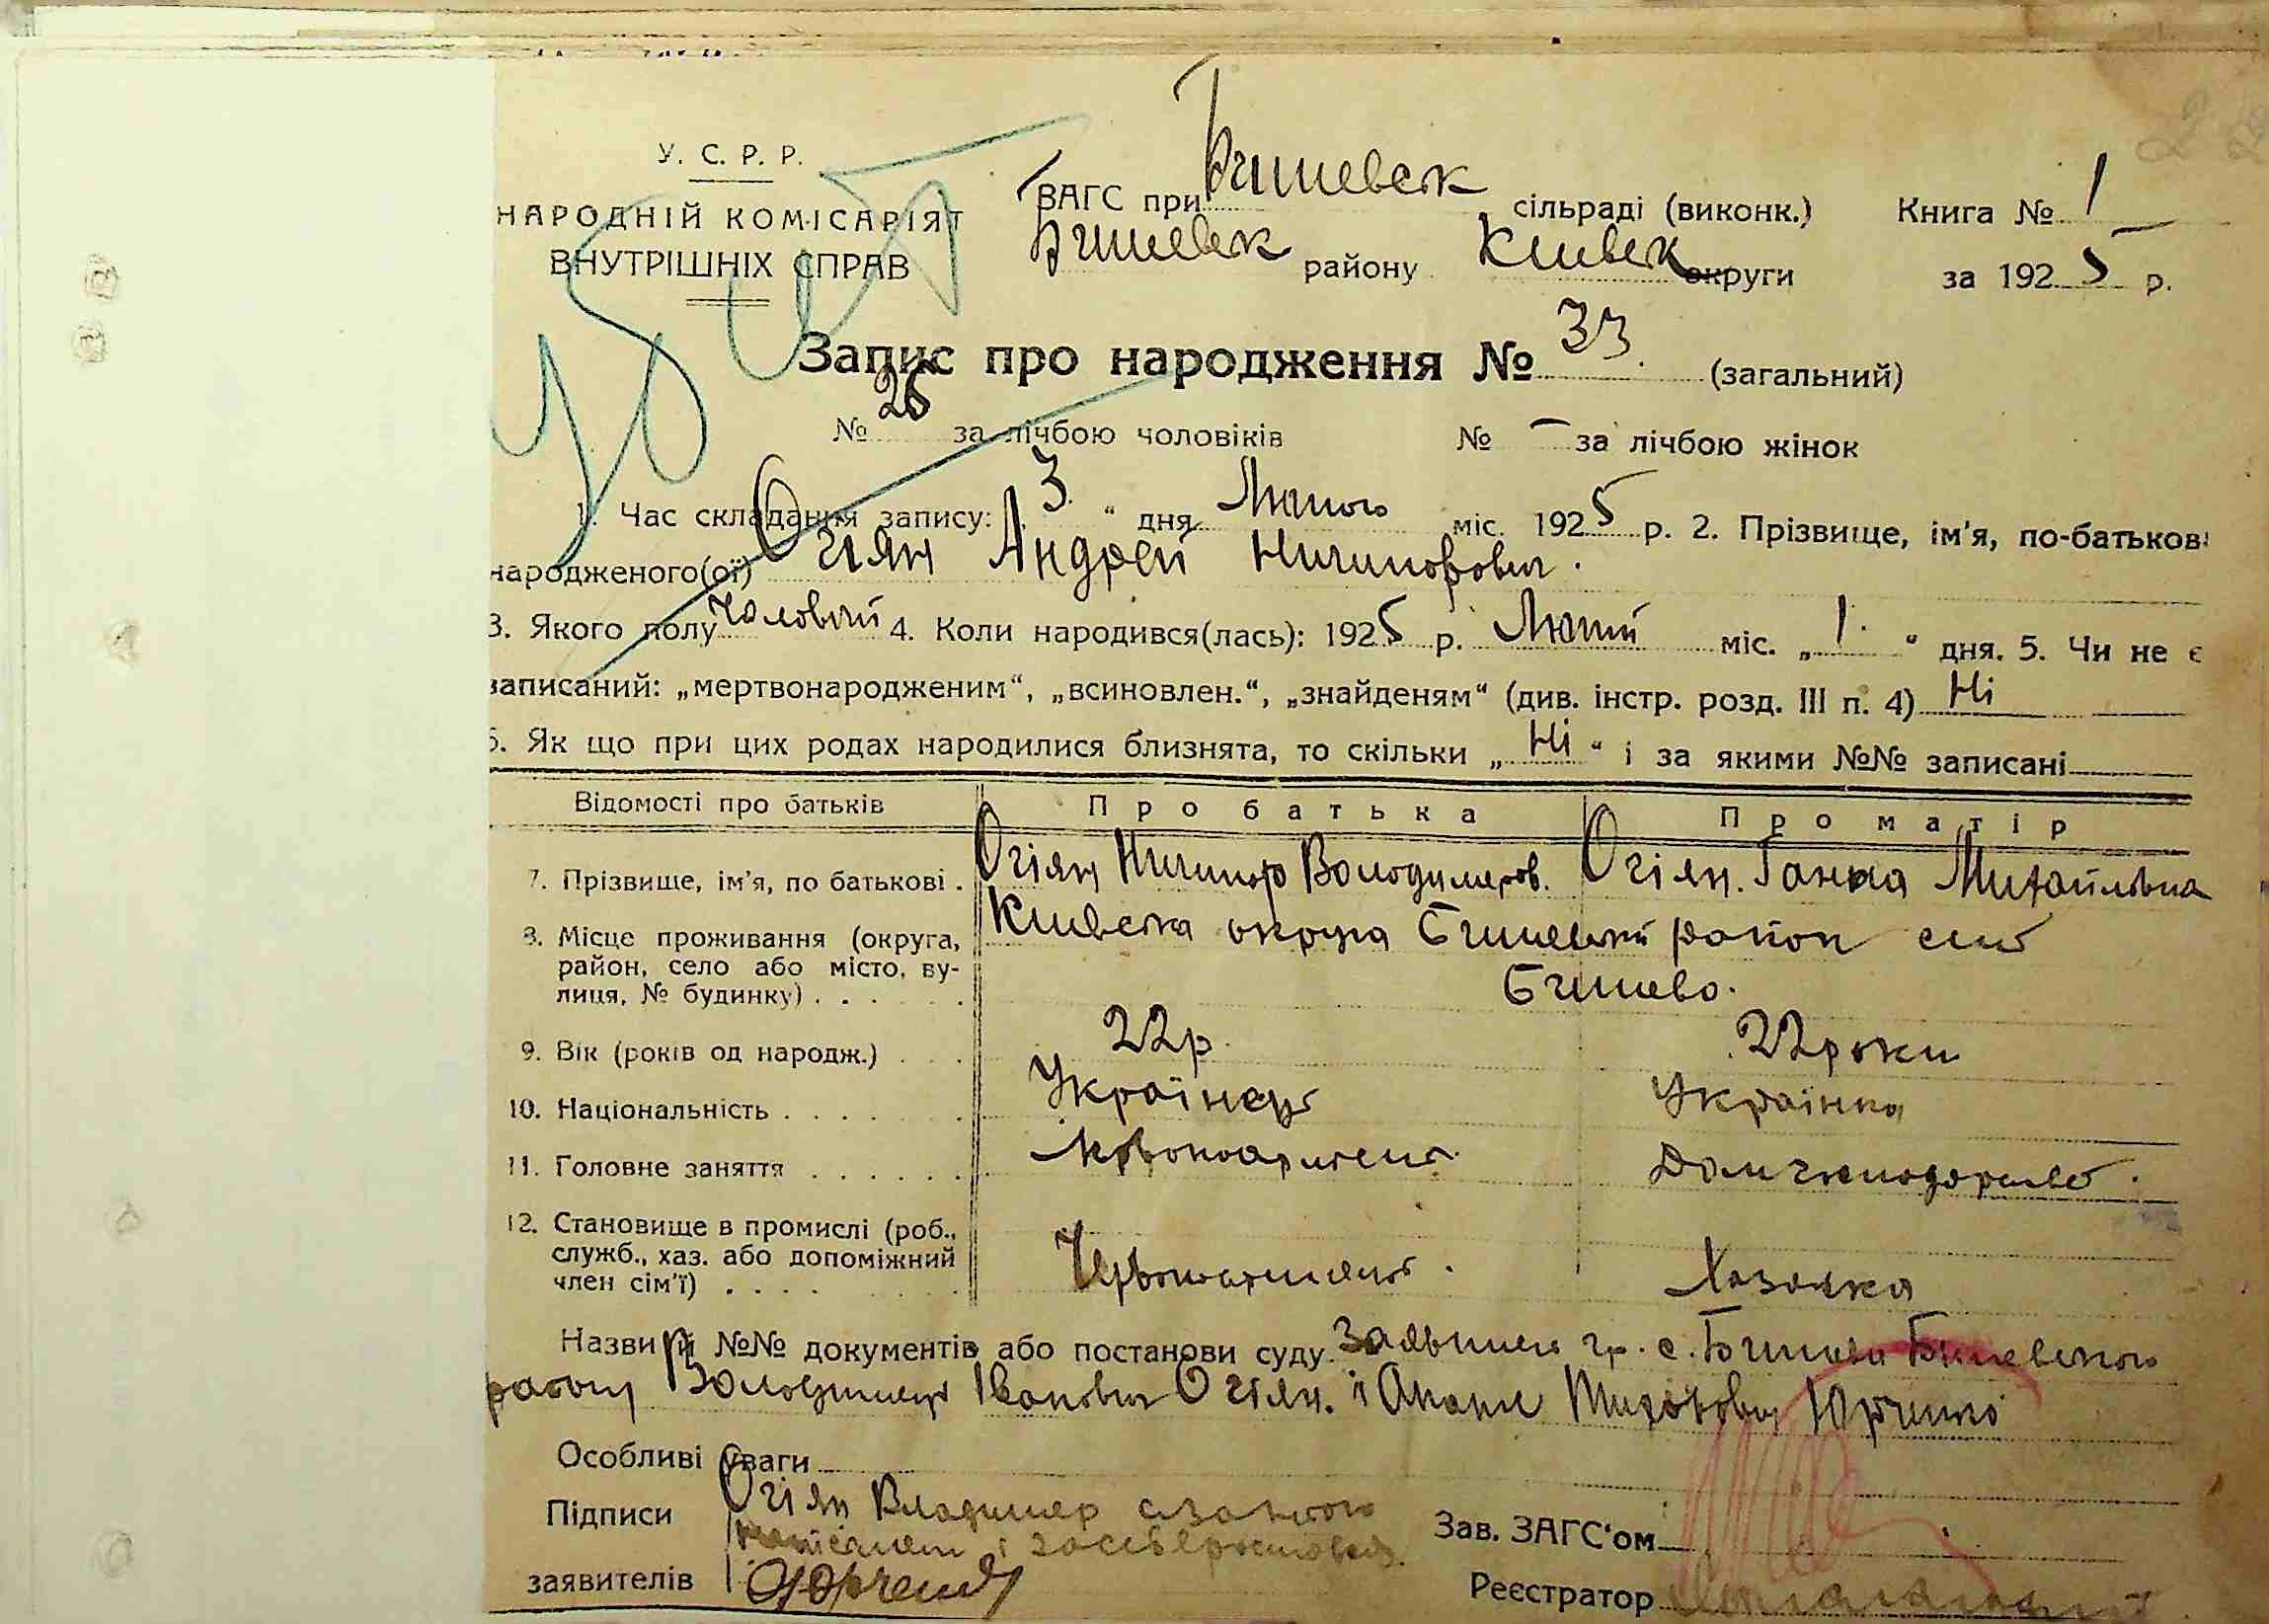 У. С. Р. Р.
НАРОДНІЙ КОМІСАРІЯТ
ВНУТРІШНІХ СПРАВ
ВАГС при Бишевск сільраді (виконк.) Книга № 1
Бишевск району Київск округи за 1925 р.
Запис про народження № 33. (загальний)
№ 26 за лічбою чоловіків № — за лічбою жінок
1. Час складання запису: 3 " дня Лютого міс. 1925 р. 2. Прізвище, ім'я, по-батькові
народженого(ої) Огіян Андрей Ничипорович.
3. Якого полу чоловічий 4. Коли народився(лась): 1925 р. Лютий міс. „ 1 " дня. 5. Чи не є
записаний: „мертвонародженим“, „всиновлен.“, „знайденям“ (див. інстр. розд. III п. 4) Ні
6. Як що при цих родах народилися близнята, то скільки „ Ні “ і за якими №№ записані
Відомості про батьків Про батька Про матір
7. Прізвище, ім'я, по батькові. Огіян Ничипор Володимиров. Огіян. Ганна Михайловна
8. Місце проживання (округа, район, село або місто, ву-
лиця, № будинку) . . . Київска округа Бишевский район село
Бишево.
9. Вік (років од народж.) . . . 22р. 22 роки
10. Національність . . . . Українець Українка
11. Головне заняття . . . . . .
12. Становище в промислі (роб.,
служб., хаз. або допоміжний
член сім'ї) . . . . Хазяйка
Назви й №№ документів або постанови суду. гр. с. Бишева Бишевского
району Володимир Іванович Огіян. і
Особливі уваги
Підписи Огіян Владимер
заявителів
Зав. ЗАГС'ом
Реєстратор